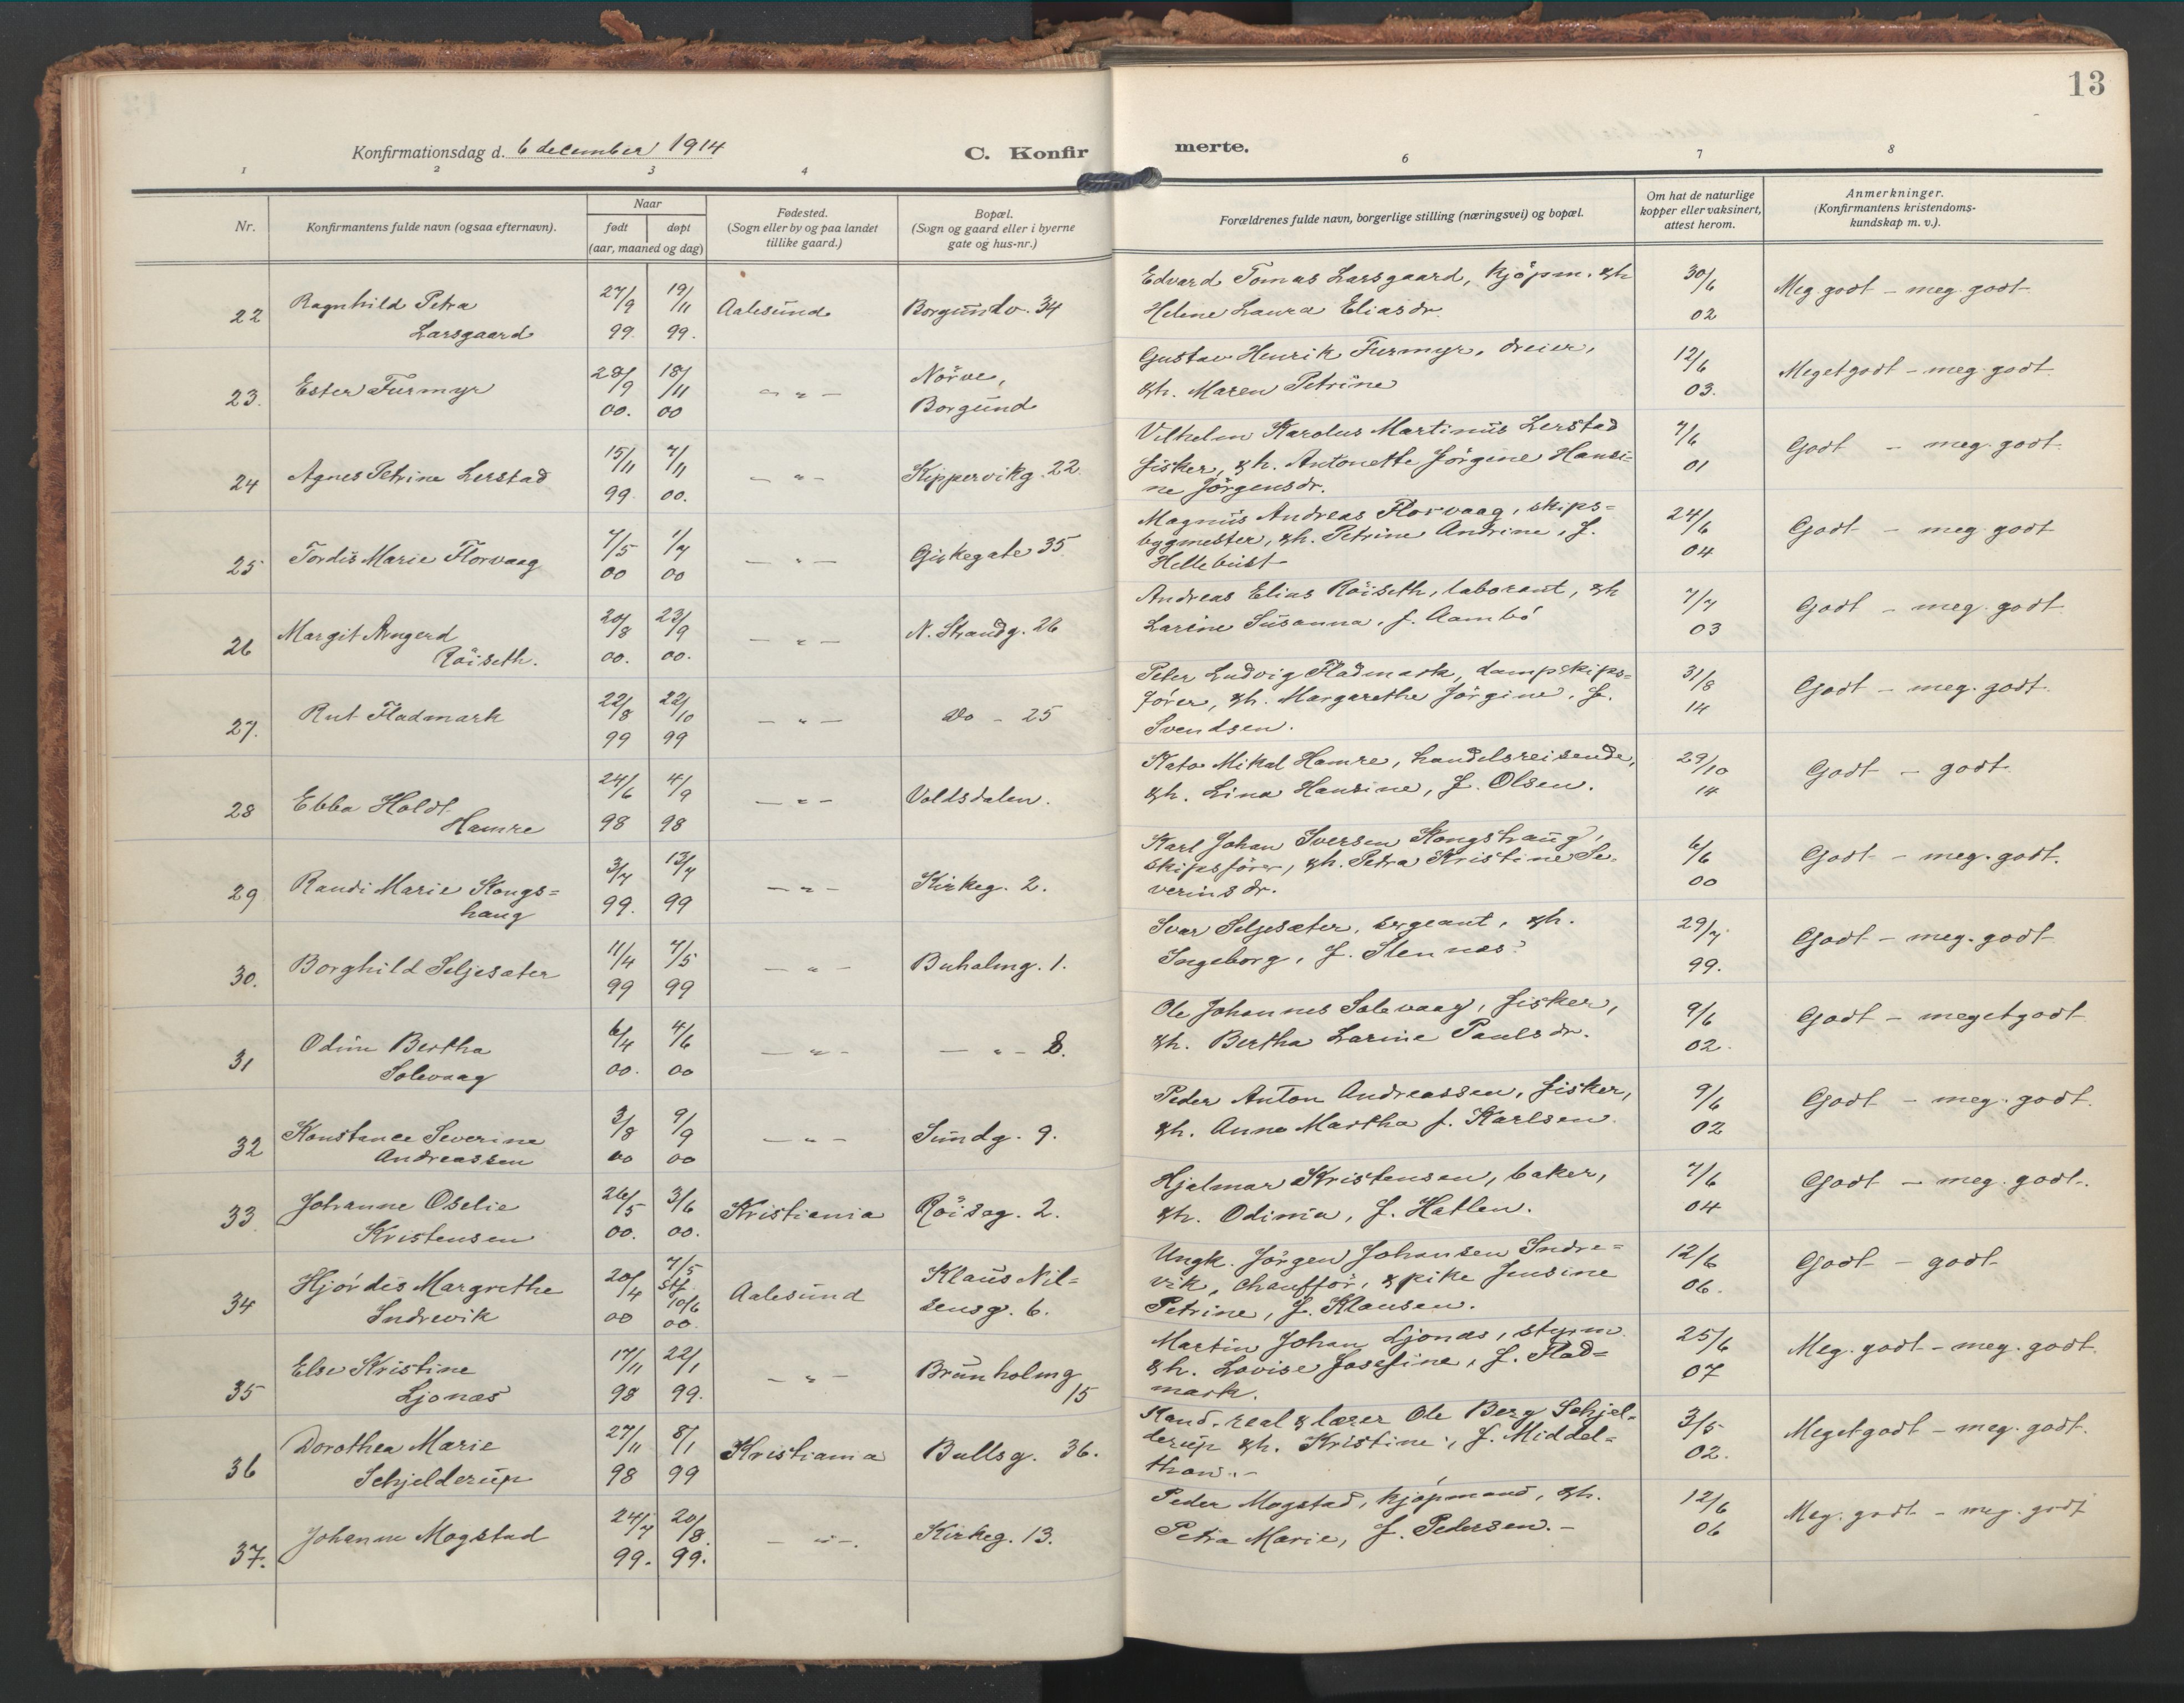 13
Konfirmationsdag d. 6 december 1914
C. Konfir
merte.
1 2 3 4 6 7 8
Nr.
Konfirmantens fulde navn (ogsaa efternavn).
Naar
født
døpt
(aar, maaned og dag)
Fødested.
(Sogn eller by og paa landet
tillike gaard.)
Bopæl.
(Sogn og gaard eller i byerne
gate og hus-nr.)
Forældrenes fulde navn, borgerlige stilling (næringsvei) og bopæl.
Om hat de naturlige
kopper eller vaksinert,
attest herom.
Anmerkninger.
(Konfirmantens kristendoms-
kundskap m. v.).
22 Ragnhild Petra 27/9 19/11 Aalesund Borgundv. 34 Edvard Tomas Larsgaard, kjöpm. & h 30/6 Meg godt - meg. godt
Larsgaard 99. 99. Helene Laura Eliasdr. 02
23. Ester Furmyr 28/9 18/11 - " - Nörve, Gustav Henrik Furmyr, dreier, 12/6 Meget godt - meg. godt.
00. 00 Borgund & h. Maren Petrine 03.
24 Agnes Petrine Lerstad 15/11 7/11 - " - Kippervikg. 22. Vilhelm Karolus Martinus Lerstad 7/6 Godt - meg. godt
99. 00. fisker, & h. Antonette Jörgine Hansi= 01
ne Jörgensdr.
25 Tordis Marie Florvaag 7/5 1/7 - " - Giskegate 35. Magnus Andreas Florvaag, skips= 24/6 Godt - meg godt
00 00 bygmester, & h. Petrine Andrine, f. 04
Hellebust
26 Margit Angerd 20/8 23/9 - " - N. Strandg. 26 Andreas Elias Röiseth, laborant, & h 7/7 Godt - meg. godt
Röiseth. 00. 00. Larine Susanna, f. Aambö 03
27. Rut Fladmark 22/8 22/10 - " - do - 25 Peter Ludvig Fladmark, dampskips= 31/8 Godt - meg. godt.
99 99 förer, & h. Margarethe Jörgine, f. 14
Svendsen.
28 Ebba Holdt 24/6 4/9 - " - Voldsdalen. Kato Mikal Hamre, handelsreisende, 29/10 Godt - godt
Hamre 98 98 & h. Lina Hansine, f. Olsen. 14
29 Randi Marie Kongs= 3/7 13/7 - " - Kirkeg. 2. Karl Johan Iversen Kongshaug, 6/6 Godt - meg. godt.
haug 99. 99 skipsförer, & h. Petra Kristine Se- 00
verinsdr.
30. Borghild Seljesæter 11/4 7/5 - " - Buholmg. 1. Ivar Seljesæter, sergeant, & h. 29/7 Godt - meg. godt
99 99 Ingeborg, f. Stennes 99.
31 Odine Bertha 6/4 4/6 - " - - " - 8. Ole Johannes Solevaag, fisker, 9/6 Godt - meget godt
Solevaag 00. 00 & h. Bertha Larine Paulsdr. 02.
32 Konstance Severine 3/8 9/9 - " - Sundg. 9. Peder Anton Andreassen, fisker, 9/6 Godt - meg. godt.
Andreassen 00 00 & h. Anne Martha f. Karlsen. 02
33. Johanne Oselie 26/5 3/6 Kristiania Röisog. 2. Hjelmar Kristensen, baker, 7/6 Godt - meg. godt.
Kristensen 00. 00. & h. Odinia, f. Hatlen. 04
34 Hjördis Margrethe 20/4 7/5 Aalesund Klaus Nil= Ungk. Jörgen Johansen Indre= 12/6 Godt - godt
Indrevik 00 Stf. 10/6 00. sensg. 6. vik, chaufför, & pike Jensine 06.
Petrine, f. Klausen.
35 Else Kristine 17/11 22/1 - " - Brunholmg Martin Johan Ljonæs, styrm. 25/6 Meg. godt - meg. godt.
Ljonæs 98 99. 15 & h. Lovise Josefine, f. Flad= 07
mark.
36 Dorothea Marie 27/11 8/1 Kristiania Bullsg. 36. Kand. real & lærer Ole Berg Schjel- 3/5 Meget godt - meg. godt.
Schjelderup 98 99 derup & h. Kristine, f. Middel= 02.
thon.-
37. Johanne Mogstad 24/7 20/8. - " -. Kirkeg. 13. Peder Mogstad, kjöpmand, & h. 12/6 Meg. godt - meg. godt
99. 99. Petra Marie, f. Pedersen.- 06